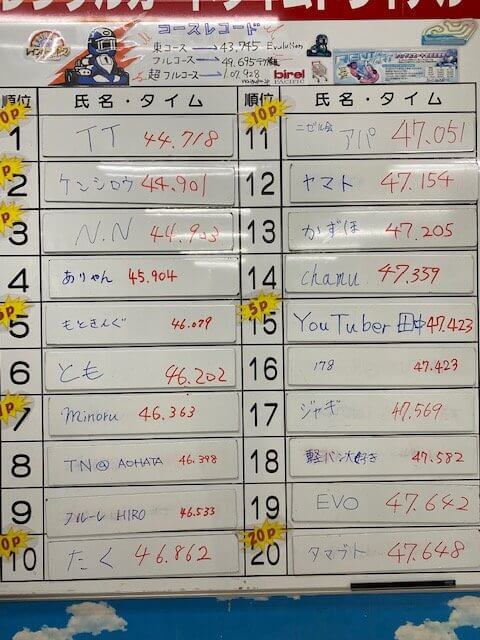 コースレコード
東コース → 43.745 Evolution
フルコース → 49.695
超フルコース → 1.02.928
birel
PACIFIC
順位 氏名・タイム
1 TT 44.718
2 ケンシロウ 44.901
3 N.N 44.903
4 ありゃん 45.904
5 もときんぐ 46.079
6 とも 46.202
7 minoru 46.363
8 TN@AOHATA 46.398
9 フルーレ HIRO 46.533
10 たく 46.862
順位 氏名・タイム
10P
11 ニゼル会 アパ 47.051
12 ヤマト 47.154
13 かずほ 47.205
14 chamu 47.339
5P
15 YouTuber 田中 47.423
16 178 47.423
17 ジャギ 47.569
18 軽バン大好き 47.582
19 EVO 47.642
20P
20 タマブト 47.648